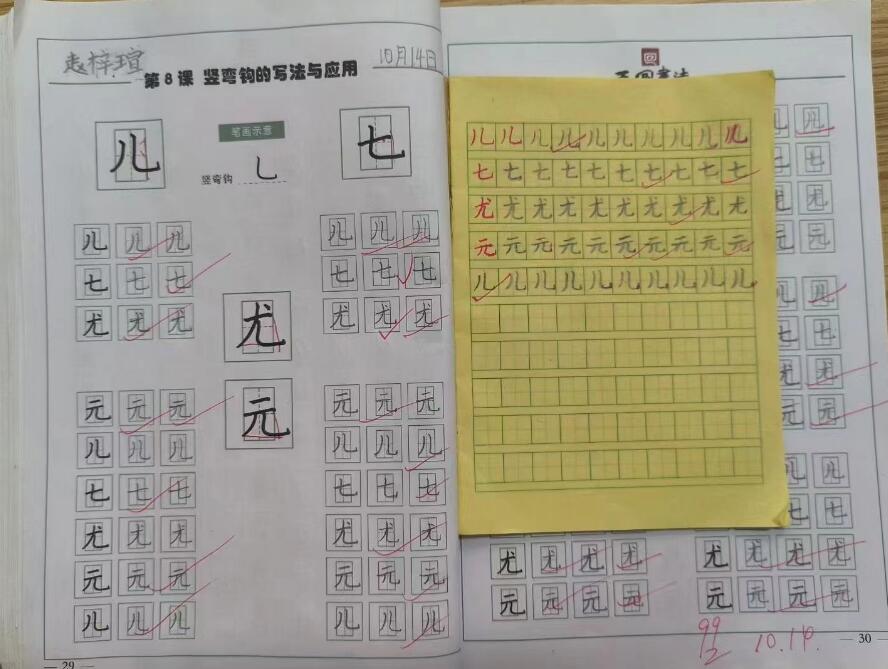 赵梓瑄
10月14日
第8课 竖弯钩的写法与应用
笔画示意
儿 七
竖弯钩 乚
尤
元
儿 儿 儿
七 七 七
尤 尤 尤
元 元 元
儿 儿 儿
七 七 七
尤 尤 尤
元 元 元
儿 儿 儿
儿 儿 儿
七 七 七
尤 尤 尤
元 元 元
儿 儿 儿
七 七 七
尤 尤 尤
元 元 元
儿 儿 儿
29
儿 儿 儿 儿 儿 儿 儿 儿 儿 儿
七 七 七 七 七 七 七 七 七 七
尤 尤 尤 尤 尤 尤 尤 尤 尤 尤
元 元 元 元 元 元 元 元 元 元
儿 儿 儿 儿 儿 儿 儿 儿 儿 儿
儿
七
尤
元
儿
七
尤
元
儿 儿
七 七
尤 尤 尤 尤 尤 尤 尤 尤
元 元 元 元 元 元 元 元
99
2
10.14.
30